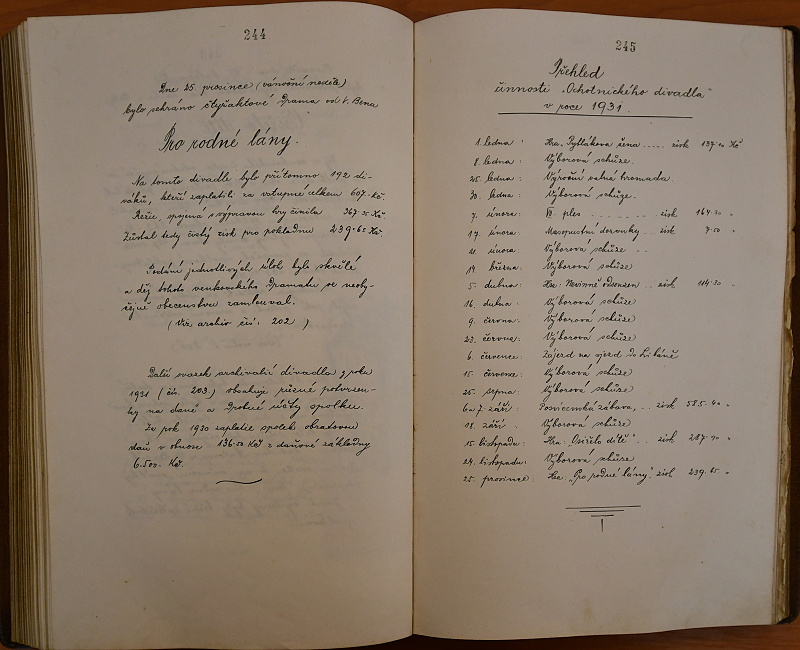 244
Dne 25. prosince (vánoční neděle)
bylo sehráno čtyřaktové Drama od V. Bena
Pro rodné lány.
Na tomto divadle bylo přítomno 192 di-
váků, kteří zaplatili za vstupné celkem 607.- Kč.
Režie, spojená s výpravou hry činila 367.35 Kč
Zůstal tedy čistý zisk pro pokladnu 239.65 Kč.
Podání jednotlivých úloh bylo skvělé
a děj tohoto venkovského Dramatu se neoby-
čejně obecenstvu zamlouval.
(Viz. archiv čís. 202)
Další svazek archivalií divadla z roku
1931 (čís. 203) obsahuje různé potvrzen-
ky na daně a Drobné účty spolku.
Za rok 1930 zaplatil spolek obratovou
daň v obnose 136.50 Kč z daňové základny
6.500 Kč.
245
Přehled
činnosti „Ochotnického divadla"
v roce 1931.
1. ledna : Hra: Pytlákova žena ..... zisk 137.20 Kč
8. ledna : Výborová schůze.
25. ledna : Výroční valná hromada
30. ledna : Výborová schůze.
7. února : VII ples ........ zisk 164.30 "
17. února : Masopustní dorunky .. zisk 7.50 "
21. února : Výborová schůze ..
14. března : Výborová schůze
5. dubna : Hra: Nevinně odsouzen .. zisk 114.30 "
16. dubna : Výborová schůze
9. června : Výborová schůze
23. června : Výborová schůze
6. července : Zájezd na sjezd do Libáně
15. července : Výborová schůze
25. srpna : Výborová schůze
6 a 7. září : Posvícenská zábava, .. zisk 585.40 "
18. září : Výborová schůze
15. listopadu : Hra: „Osiřelo dítě" .. zisk 287.90 "
24. listopadu : Výborová schůze
25. prosince : Hra: „Pro rodné lány". zisk 239.65 "